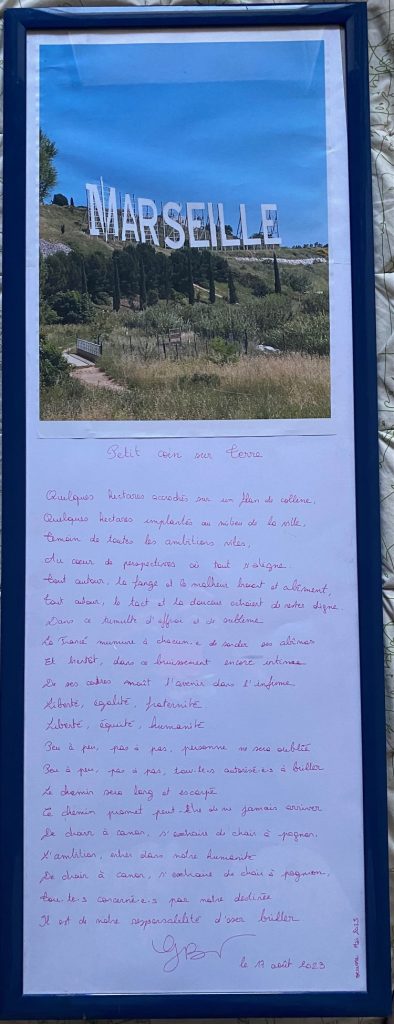 MARSEILLE
Petit coin sur terre
Quelques hectares accrochés sur un flan de colline,
Quelques hectares implantés au milieu de la ville,
Témoin de toutes les ambitions viles,
Au cœur de perspectives où tout s'aligne.
Tout autour, la fange et le malheur broient et abîment,
Tout autour, le tact et la douceur essaient de rester digne.
Dans ce tumulte d'effroi et de sublime
Le Transé murmure à chacun.e de sonder ses abîmes
Et bientôt, dans ce bruissement encore intime
De ses cadres naît l'avenir dans l'infime
Liberté, égalité, fraternité
Liberté, équité, humanité
Peu à peu, pas à pas, personne ne sera oublié
Peu à peu, pas à pas, tou.te.s autorisé.e.s à briller
Le chemin sera long et escarpé
Ce chemin promet peut-être de ne jamais arriver
De chair à canon, s'extraire de chair à pognon,
L'ambition, entrer dans notre humanité
De chair à canon, s'extraire de chair à pognon,
Tou.te.s concerné.e.s par notre destinée
Il est de notre responsabilité d'oser briller
le 17 août 2023
Mai 2023